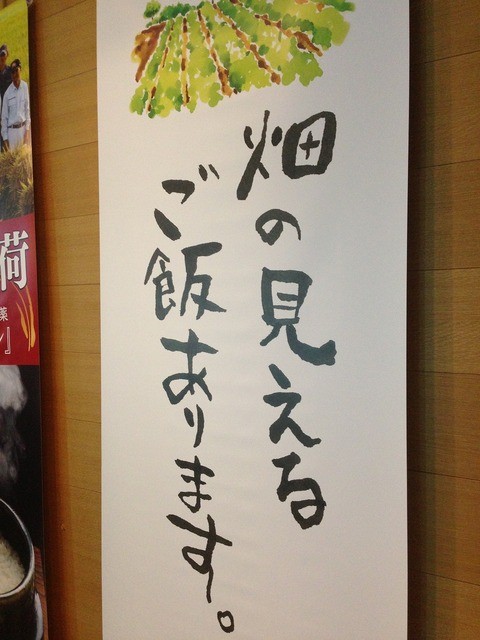 畑の見える
ご飯あります。
荷
薬
』